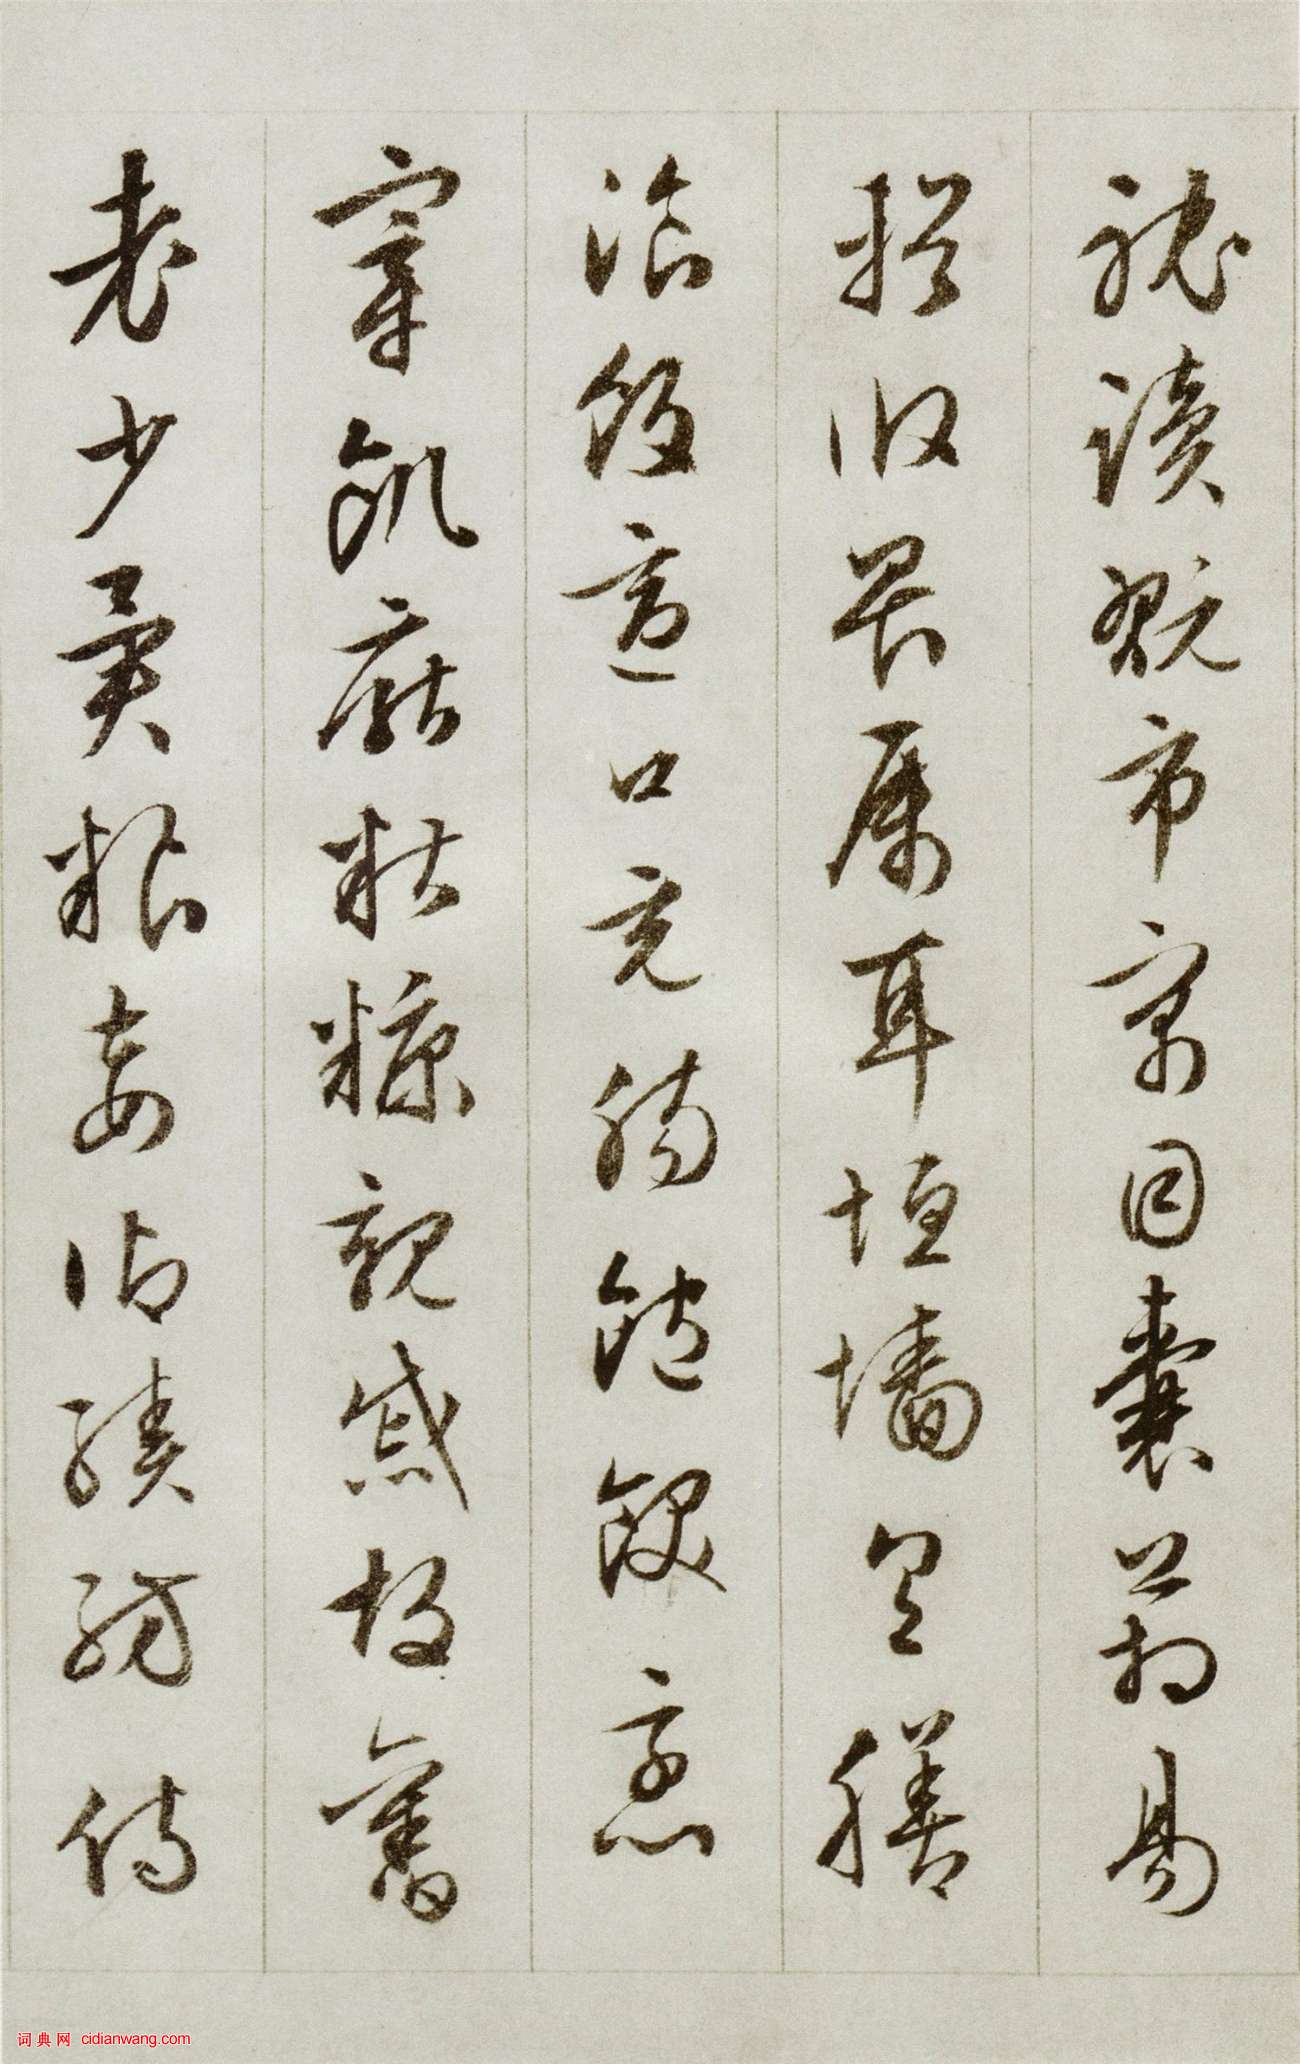 耽讀翫市寓目囊箱易
輶攸畏屬耳垣墻具膳
飡飯適口充腸飽飫烹
宰飢厭糟糠親戚故舊
老少異糧妾御績紡侍
词典网 cidianwang.com